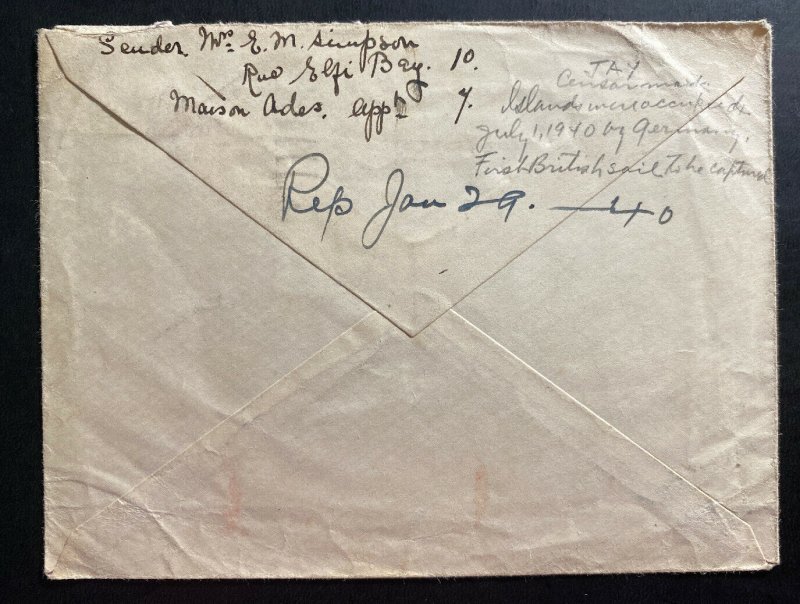 Sender. Mrs. E. M. Simpson
Rue Elfi Bey. 10.
Maison Ades. appt 7.
JAY
Censor mark
Islands were occupied
July 1, 1940 by Germany.
First British soil to be captured
Rep Jan 29. — 40